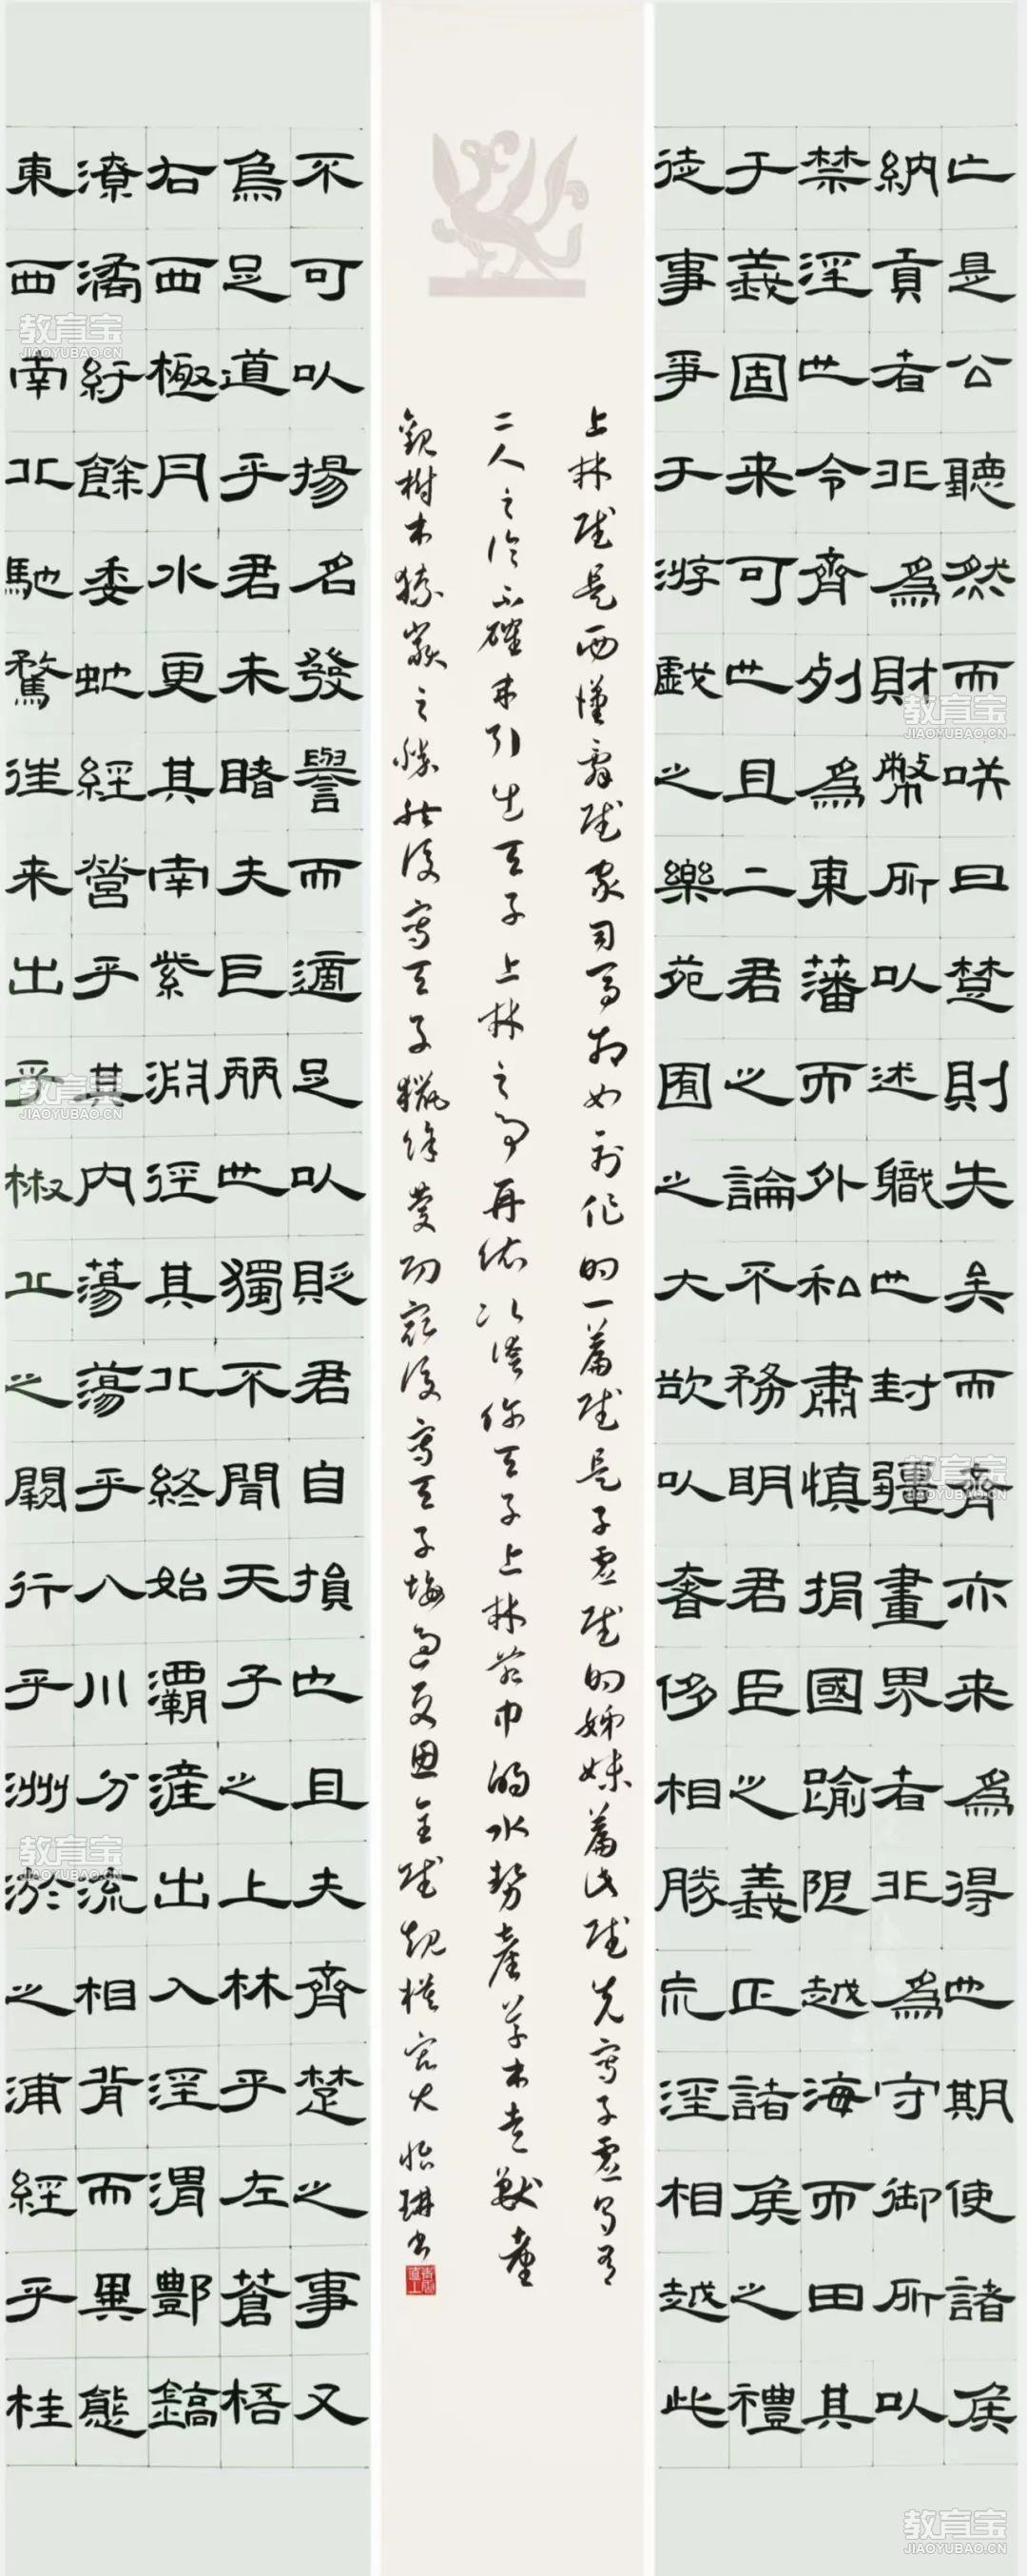 亡是公聽然而咲曰楚則失矣而齊亦来爲得也期使諸侯
納貢者非爲財幣所以述職也封疆畫界者非爲守御所以
禁淫也今齊列爲東藩而外私肅慎捐國踰限越海而田其
于義固来可也且二君之論不務明君臣之義正諸侯之禮
徒事爭于游戲之樂苑囿之大欲以奢侈相勝荒淫相越此
上林賦是西漢辭賦家司馬相如創作的一篇賦是子虛賦的姊妹篇此賦先寫子虛烏有
二人之論不確来引出天子上林之事再依次誇飾天子上林苑中的水勢産草木走獸臺
觀樹木猿類之勝然後寫天子獵餘慶功寂後寫天子悔過反思全賦規模宏大 怡琳書
不可以揚名發譽而適足以貶君自損也且夫齊楚之事又
烏足道乎君未睹夫巨麗也獨不聞天子之上林乎左蒼梧
右西極丹水更其南紫淵徑其北終始灞滻出入淫渭酆鎬
潦潏紆餘委虵經營乎其内蕩蕩乎八川分流相背而異態
東西南北馳騖往来出乎椒丘之闕行乎洲淤之浦經乎桂
教育宝
JIAOYUBAO.CN
教育宝
JIAOYUBAO.CN
教育宝
JIAOYUBAO.CN
教育宝
JIAOYUBAO.CN
教育宝
JIAOYUBAO.CN
教育宝
JIAOYUBAO.CN